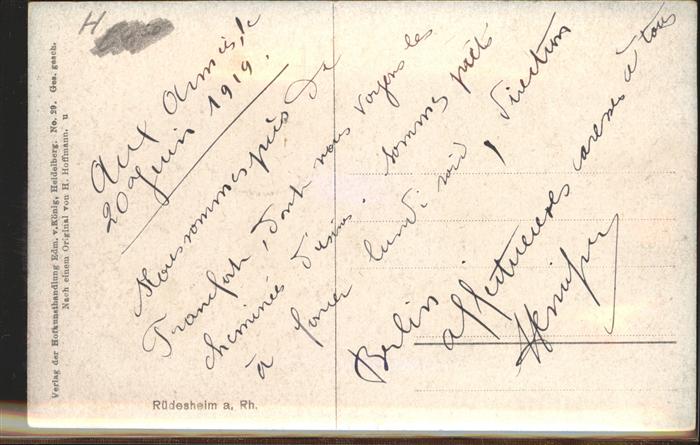 H
Aux Armées, le
20 Juin 1919.
Nous sommes près de
Francfort, dont nous voyons les
cheminées d'usines. sommes prêts
à lundi soir, direction
Berlin.
affectueuses caresses à tous
Verlag der Hofkunsthandlung Edm. v. König, Heidelberg. No. 29. Ges. gesch.
Nach einem Original von H. Hoffmann. u
Rüdesheim a, Rh.